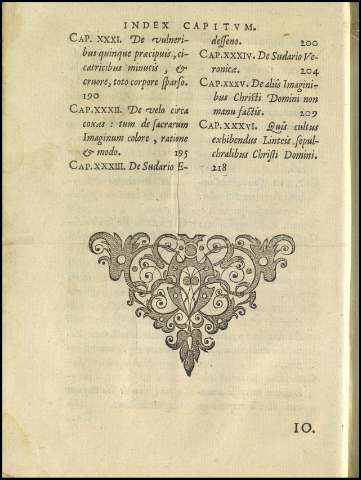 INDEX CAPITVM.
CAP. XXXI. De vulneri-
bus quinque præcipuis, ci-
catricibus minutis, &
cruore, toto corpore sparso.
190
CAP. XXXII. De velo circa
coxas : tum de sacrarum
Imaginum colore, ratione
& modo. 195
CAP. XXXIII. De Sudario E-
desseno. 200
CAP. XXXIV. De Sudario Ve-
ronicæ. 204
CAP. XXXV. De aliis Imagini-
bus Christi Domini non
manu factis. 209
CAP. XXXVI. Quis cultus
exhibendus Linteis sepul-
chralibus Christi Domini.
218
IO.